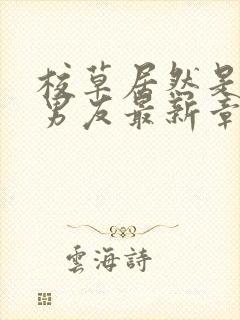 校草居然是
男友最新章
雲海詩